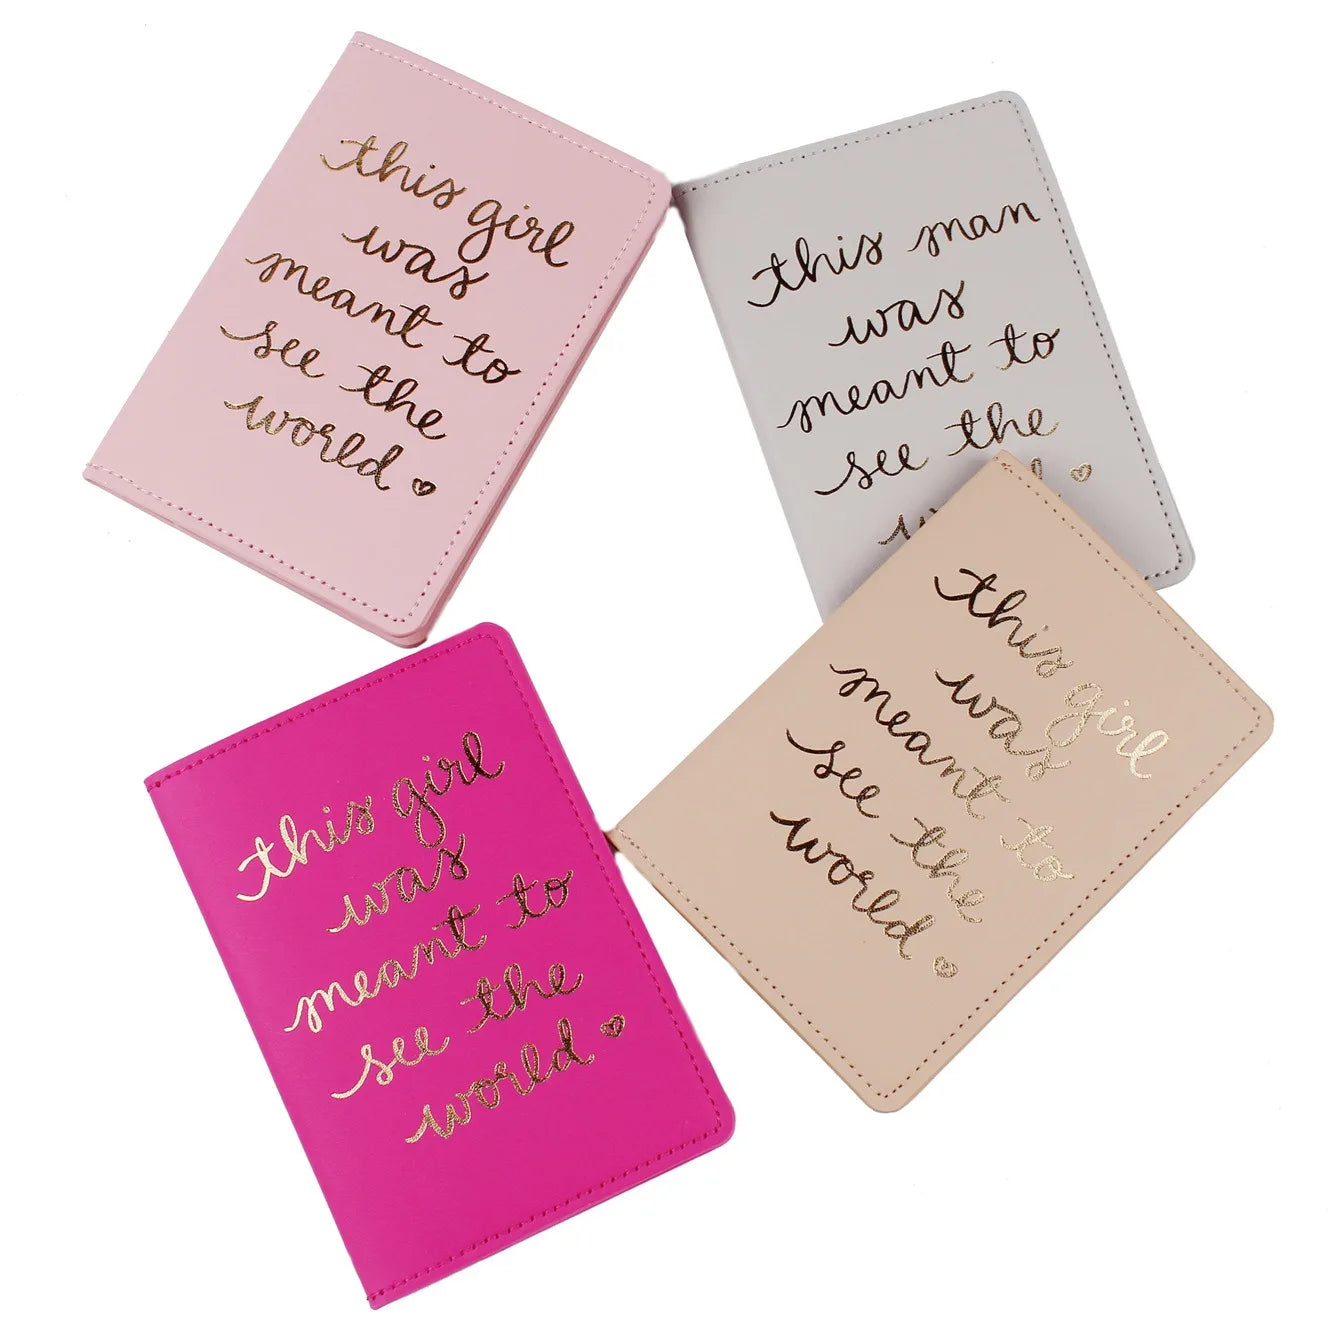 this girl
was
meant to
see the
world
this man
was
meant to
see the
this girl
was
meant to
see the
world
this girl
was
meant to
see the
world